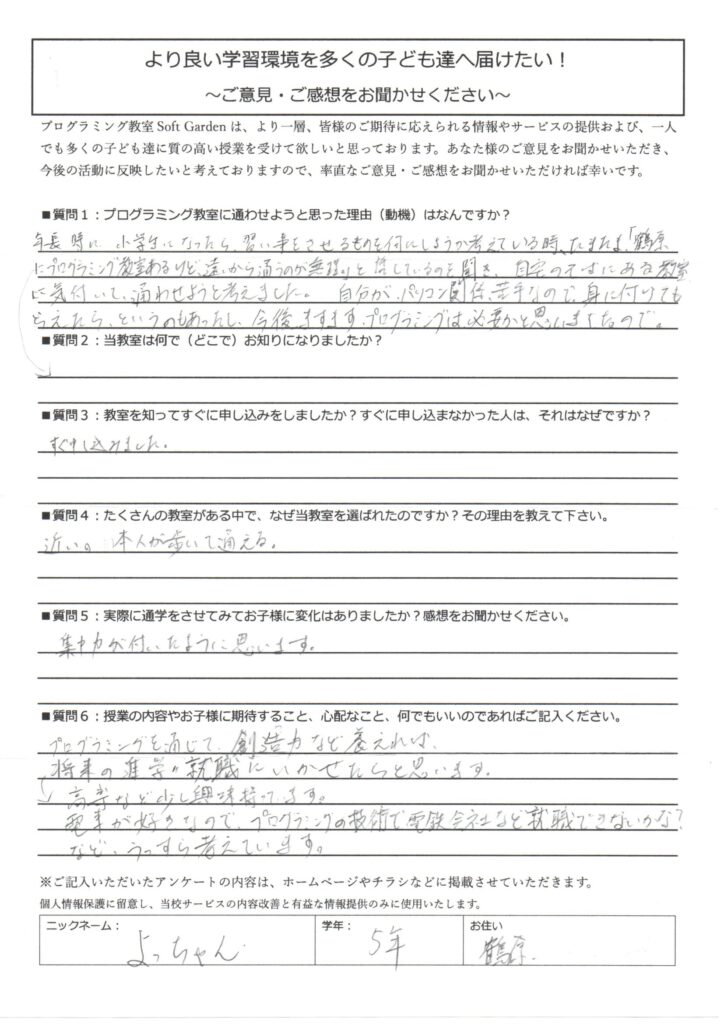 より良い学習環境を多くの子ども達へ届けたい！
～ご意見・ご感想をお聞かせください～
プログラミング教室 Soft Garden は、より一層、皆様のご期待に応えられる情報やサービスの提供および、一人
でも多くの子ども達に質の高い授業を受けて欲しいと思っております。あなた様のご意見をお聞かせいただき、
今後の活動に反映したいと考えておりますので、率直なご意見・ご感想をお聞かせいただければ幸いです。
■質問１：プログラミング教室に通わせようと思った理由（動機）はなんですか？
年長時に 小学生になったら、習い事をさせるものを何にしようか考えている時、たまたま、「鶴原
にプログラミング教室あるけど、遠いから通うのが無理」と話しているのを聞き、自宅のすぐにある教室
に気付いて、通わせようと考えました。 自分が、パソコン関係、苦手なので、身に付けても
らえたら、というのもあったし、今後ますます、プログラミングは必要かと思いましたなので。
■質問２：当教室は何で（どこで）お知りになりましたか？
■質問３：教室を知ってすぐに申し込みをしましたか？すぐに申し込まなかった人は、それはなぜですか？
すぐ申し込みました。
■質問４：たくさんの教室がある中で、なぜ当教室を選ばれたのですか？その理由を教えて下さい。
近い。 本人が歩いて通える。
■質問５：実際に通学をさせてみてお子様に変化はありましたか？感想をお聞かせください。
集中力が付いたように思います。
■質問６：授業の内容やお子様に期待すること、心配なこと、何でもいいのであればご記入ください。
プログラミングを通じて、創造力など養えれば、
将来の進学や就職にいかせたらと思います。
高専など少し興味持ってます。
電車が好きなので、プログラミングの技術で電鉄会社など就職できないかな？
など、うっすら考えています。
※ご記入いただいたアンケートの内容は、ホームページやチラシなどに掲載させていただきます。
個人情報保護に留意し、当校サービスの内容改善と有益な情報提供のみに使用いたします。
ニックネーム： よっちゃん
学年： 5年
お住い 鶴原